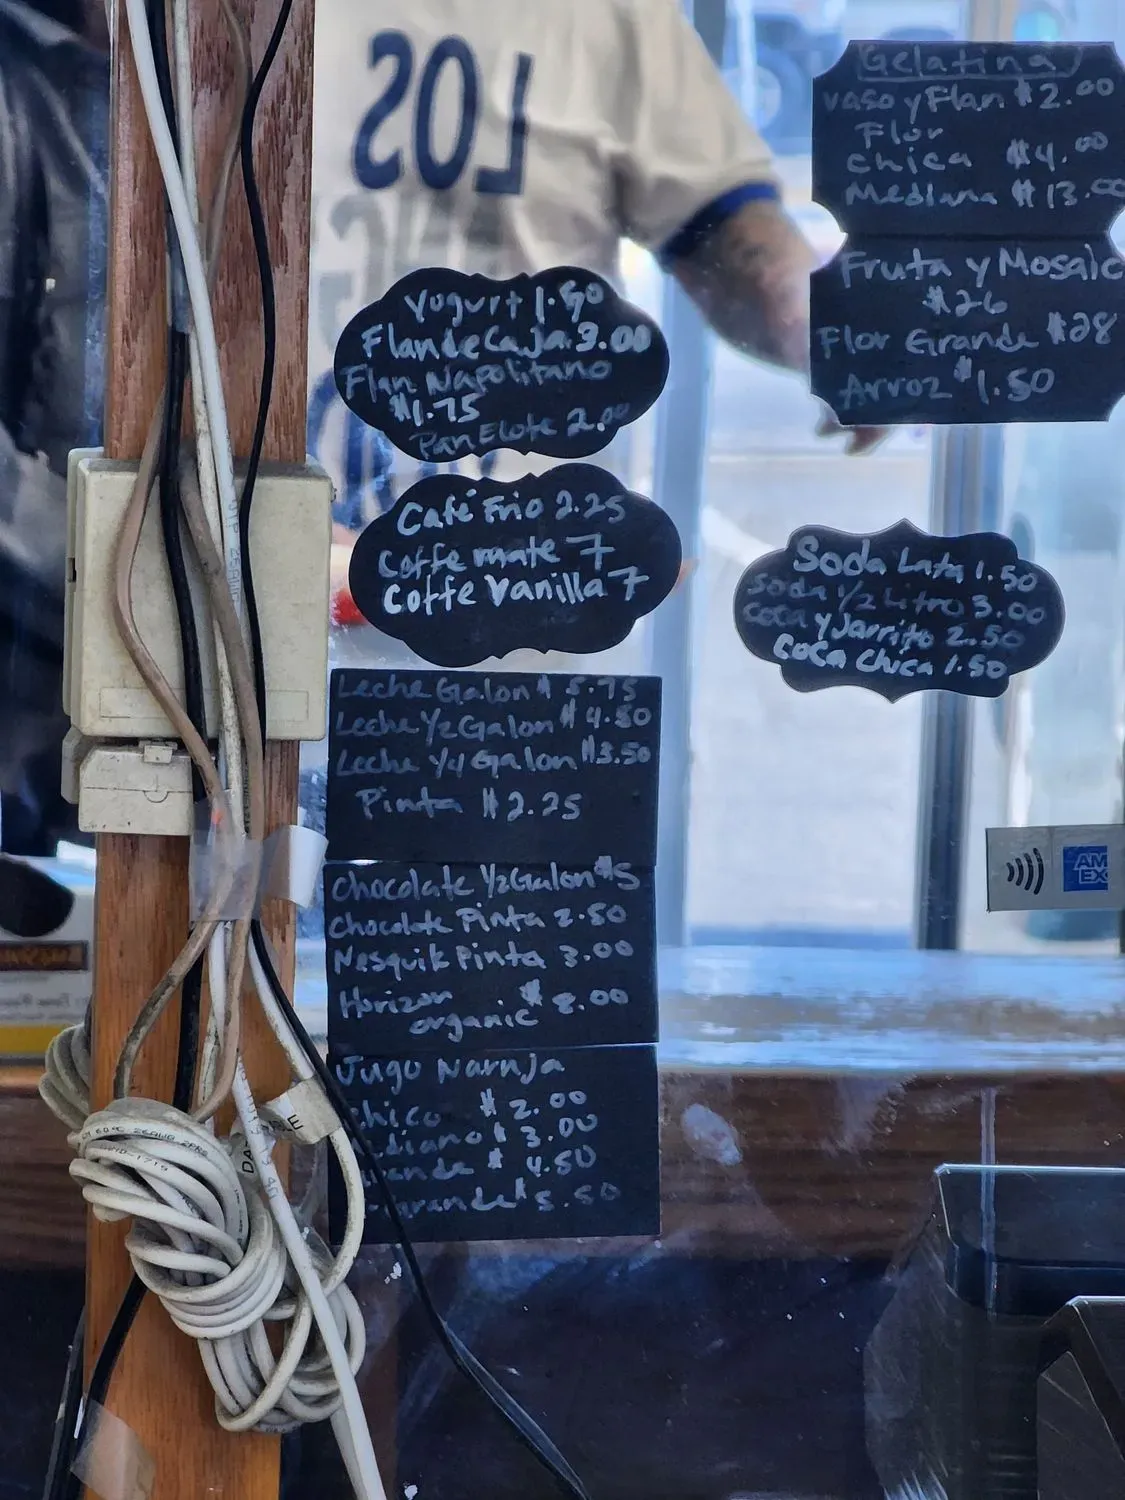 LOS
Yogurt 1.50
Flan de Caja 3.00
Flan Napolitano
$1.75
Pan Elote 2.00
Café Frio 2.25
Coffe mate 7
Coffe Vanilla 7
Leche Galon $ 5.75
Leche 1/2 Galon $ 4.50
Leche 1/4 Galon $3.50
Pinta $2.25
Chocolate 1/2 Galon $5
Chocolate Pinta 2.50
Nesquik Pinta 3.00
Horizon $ 2.00
organic
Jugo Narnja
chico $ 2.00
diano $ 3.00
ande $ 4.50
grande $ 5.50
Gelatina
Vaso y Flan $2.00
Flor
Chica $4.00
Mediana $13.00
Fruta y Mosaic
$26
Flor Grande $28
Arroz $1.50
Soda Lata 1.50
Soda 1/2 Litro 3.00
Coca y Jarrito 2.50
Coca Chica 1.50
AM
EX